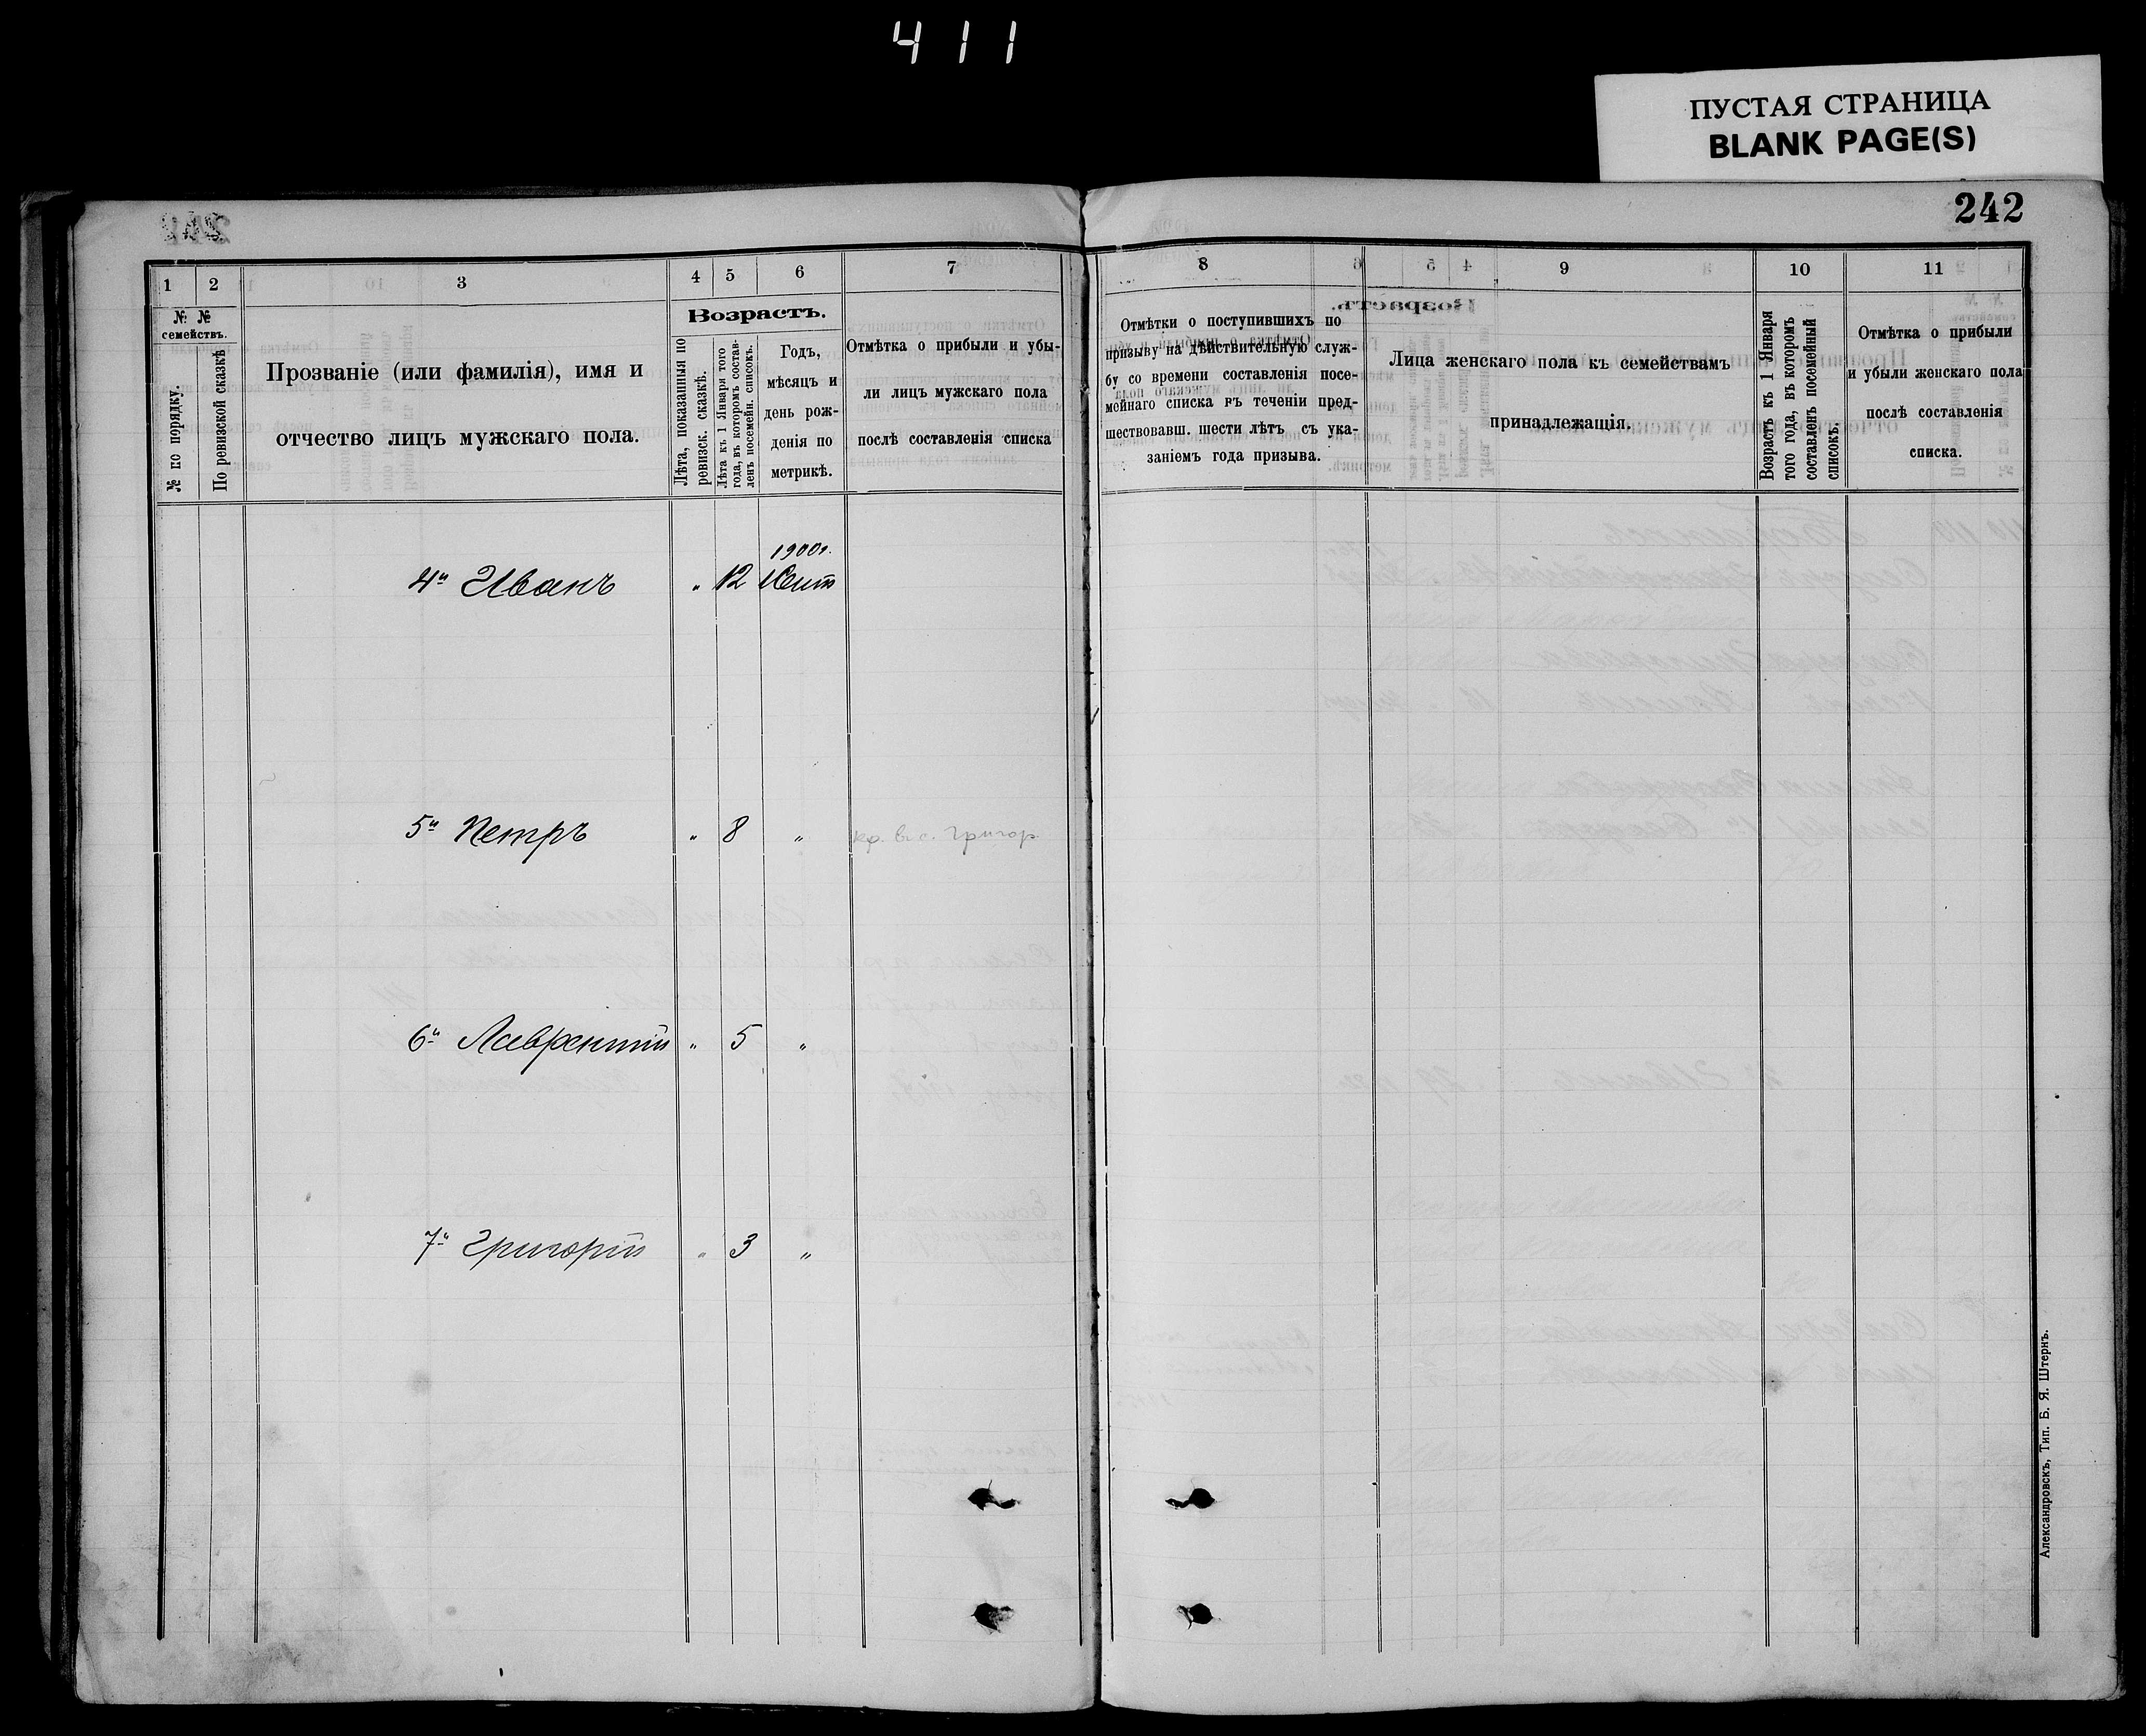 411
ПУСТАЯ СТРАНИЦА
BLANK PAGE(S)
242
1
2
3
4
5
6
7
8
9
10
11
№ №
семействъ.
№ по порядку.
По ревизской сказкѣ
Прозваніе (или фамилія), имя и
отчество лицъ мужскаго пола.
Возрастъ.
Лѣта, показанныя по
ревизск. сказкѣ.
Лѣта къ 1 Января того
года, въ которомъ состав-
ленъ посемейн. списокъ.
Годъ,
мѣсяцъ и
день рож-
денія по
метрикѣ.
Отмѣтка о прибыли и убы-
ли лицъ мужскаго пола
послѣ составленія списка
Отмѣтки о поступившихъ по
призыву на дѣйствительную служ-
бу со времени составленія посе-
мейнаго списка въ теченіи пред-
шествовавш. шести лѣтъ съ ука-
заніемъ года призыва.
Лица женскаго пола къ семействамъ
принадлежащія.
Возрастъ къ 1 Января
того года, въ которомъ
составленъ посемейный
списокъ.
Отмѣтка о прибыли
и убыли женскаго пола
послѣ составленія
списка.
1900г.
4й Иванъ " 12
5й Петръ " 8 " кр. в. с. Григор
6й Лаврентій " 5 "
7й Григорій " 3 "
Александровскъ, Тип. Б. Я. Штернъ.